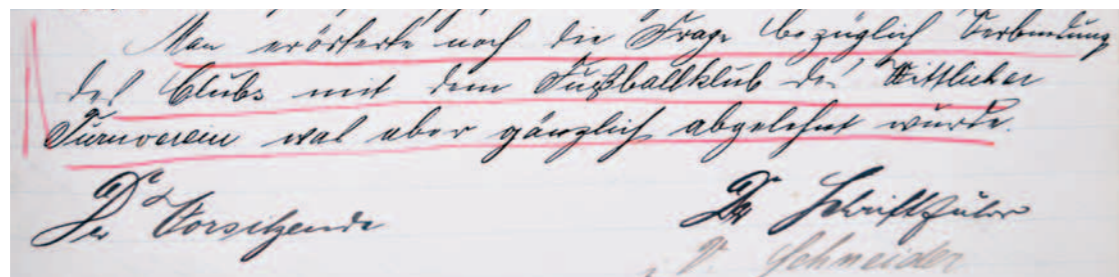 Man erörterte noch die Frage bezüglich Verbindung
des Clubs mit dem Fußballklub des Wittlicher
Turnverein was aber gänzlich abgelehnt wurde.
Der Vorsitzende Der Schriftführer
P. Schneider